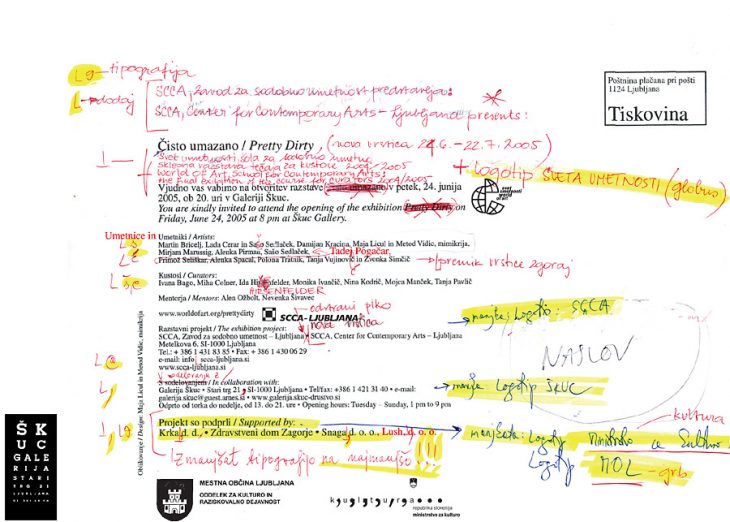 tipografija
dodaj
SCCA, Zavod za sodobno umetnost predstavlja:
SCCA, Center for Contemporary Arts – Ljubljana presents:
Poštnina plačana pri pošti
1124 Ljubljana
Tiskovina
Čisto umazano / Pretty Dirty, (nova vrstica 24.6. - 22.7.2005)
Svet umetnosti, šola za sodobno umetnost
sklepna razstava tečaja za kustose 2004/2005
World of Art, School for Contemporary Arts:
the final exhibition of the course for curators 2004/2005
+ Logotip SVETA UMETNOSTI (globus)
svet
umetnosti
world
of art
Vjudno vas vabimo na otvoritev razstave Čisto umazano v petek, 24. junija
2005, ob 20. uri v Galeriji Škuc.
You are kindly invited to attend the opening of the exhibition Pretty Dirty on
Friday, June 24, 2005 at 8 pm at Škuc Gallery.
Umetnice in
Umetniki / Artists:
Martin Bricelj, Lada Cerar in Sašo Sedlaček, Damijan Kracina, Maja Licul in Metod Vidic, mimikrija,
Mirjam Marussig, Alenka Pirman, Sašo Sedlaček, Tadej Pogačar,
Primož Seliškar, Alenka Spacal, Polona Tratnik, Tanja Vujinović in Zvonka Simčič
premik vrstice zgoraj
Kustosi / Curators:
Ivana Bago, Miha Colner, Ida Hirsenfelder, Monika Ivančič, Nina Kodrič, Mojca Manček, Tanja Pavlič
HIRSENFELDER
Mentorja / Mentors: Alen Ožbolt, Nevenka Šivavec
odstrani piko
www.worldofart.org/prettydirty
SCCA-LJUBLJANA
nova vrstica
manjkaj Logotip SCCA
Razstavni projekt / The exhibition project:
SCCA, Zavod za sodobno umetnost – Ljubljana • SCCA, Center for Contemporary Arts – Ljubljana
Metelkova 6, SI-1000 Ljubljana
Tel.: + 386 1 431 83 85 • Fax: + 386 1 430 06 29
e-mail: info scca-ljubljana.si
www.scca-ljubljana.si
NASLOV
S sodelovanjem / In collaboration with:
Galerija Škuc • Stari trg 21 • SI-1000 Ljubljana • Tel/fax: +386 1 421 31 40 • e-mail:
galerija.skuc@guest.arnes.si • www.galerija.skuc-drustvo.si
Odprto od torka do nedelje, od 13. do 21. ure • Opening hours: Tuesday – Sunday, 1 pm to 9 pm
manjka Logotip ŠKUC
Oblikovanje / Design: Maja Licul in Metod Vidic, mimikrija
Projekt so podprli / Supported by:
Krka d. d., • Zdravstveni dom Zagorje • Snaga d. o. o., Lush d. o. o.
kultura
manjkata: Logotip Ministrstvo za kulturo
Logotip MOL - grb
Zmanjšat tipografijo na najmanjšo!!!
ŠK
UC GAL
ERIJA
STARI
TRG 21
LJUBLJANA
MESTNA OBČINA LJUBLJANA
ODDELEK ZA KULTURO IN
RAZISKOVALNO DEJAVNOST
kultura
republika slovenija
ministrstvo za kulturo